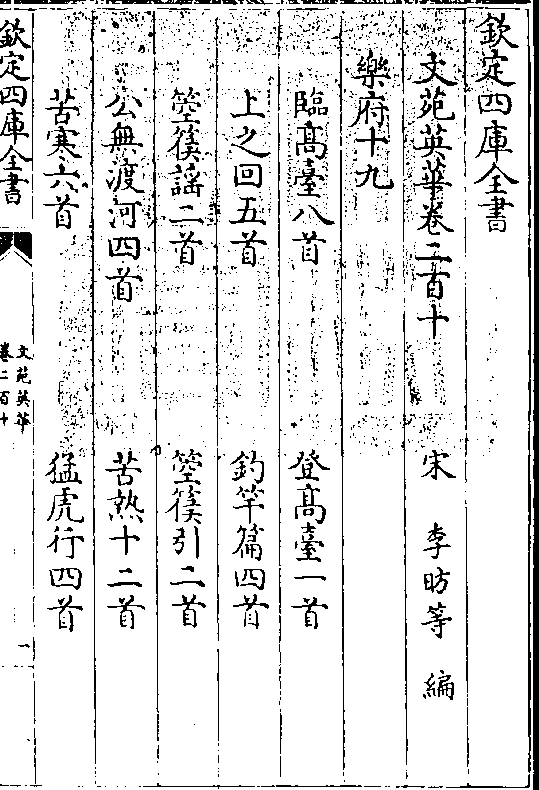 欽定四庫全書
文苑英華卷二百十 宋 李昉等 編
樂府十九
臨髙臺八首 登髙臺一首
上之回五首 釣竿篇四首
箜篌謡二首 箜篌引二首
公無渡河四首 苦熱十二首
苦寒六首 猛虎行四首
欽定四庫全書
文苑英華
卷二百十
一